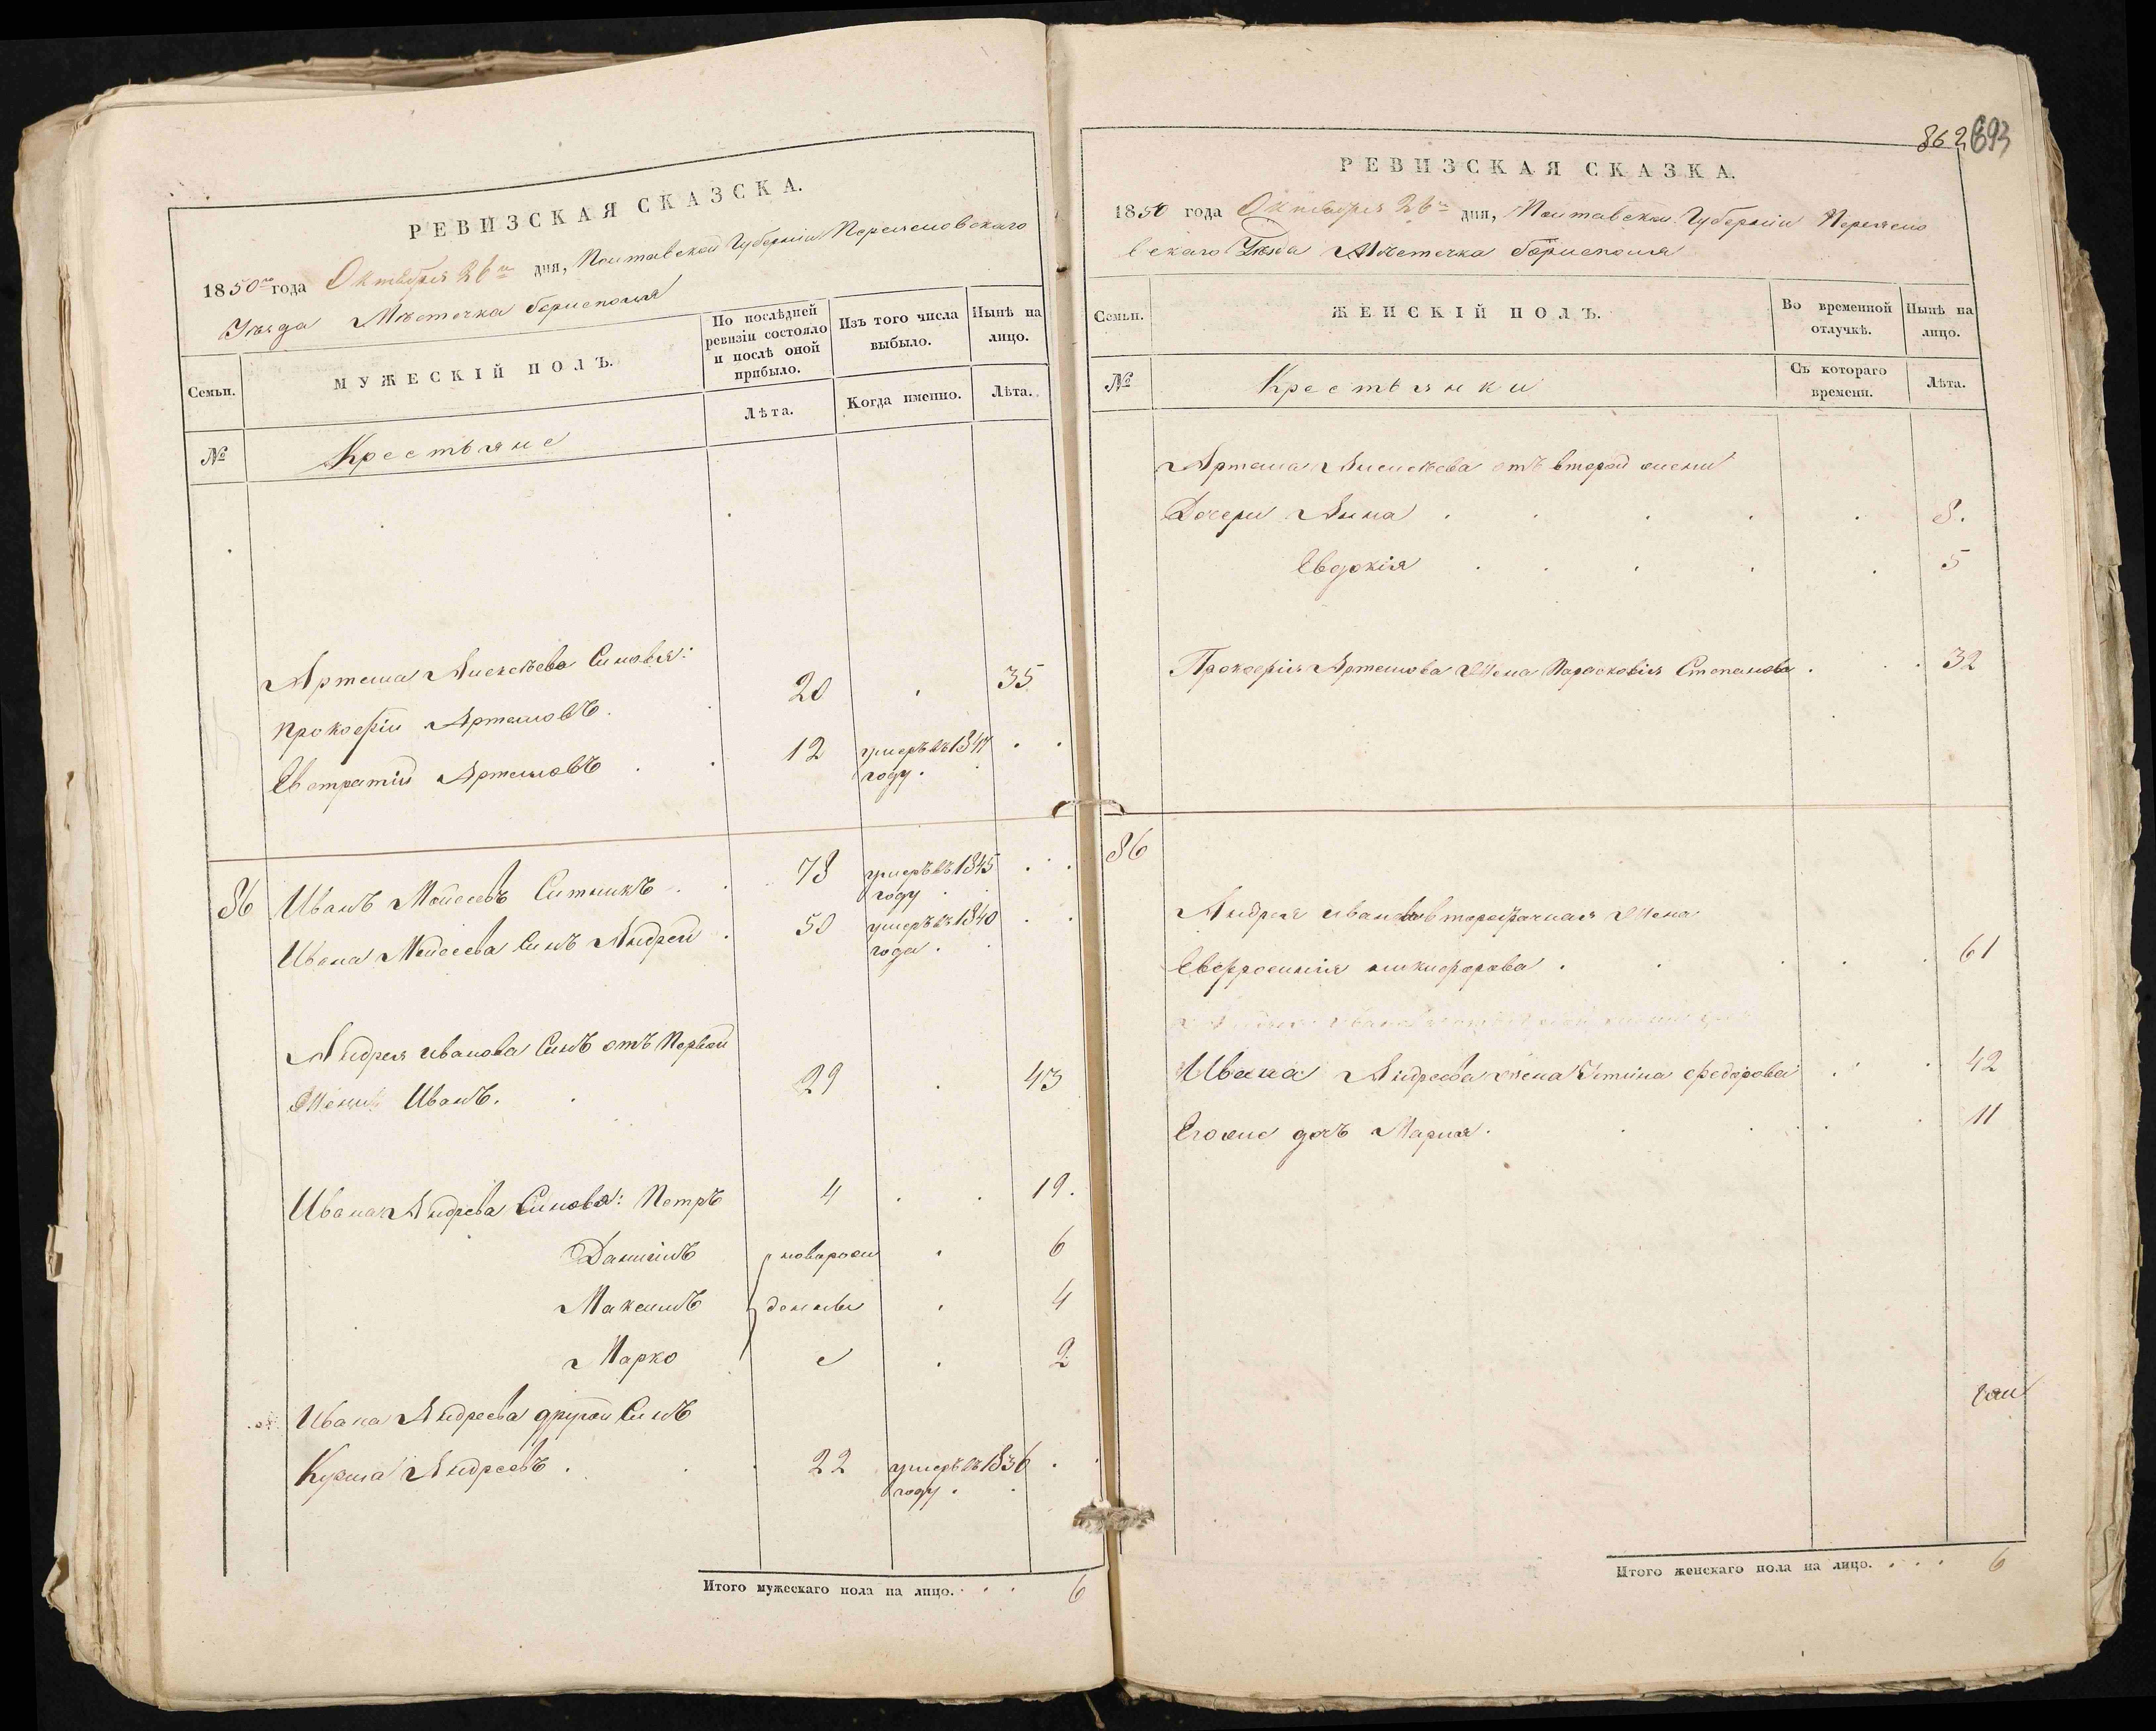 РЕВИЗСКАЯ СКАЗСКА.
1850го года Октября 26го дня, Полтавской Губерніи Переяславскаго
Уѣзда Мѣстечка Борисполя
Семьи.
МУЖЕСКІЙ ПОЛЪ.
По послѣдней ревизіи состояло и послѣ оной прибыло.
Изъ того числа выбыло.
Нынѣ на лицо.
№
Крестьяне
Лѣта.
Когда именно.
Лѣта.
Артема Алексѣева Синовья:
Прокофій Артемовъ . 20 . 35
Евстратій Артемовъ . . 12 умеръ въ 1847 году . . .
86 Иванъ Мойсеевъ Ситникъ . . 78 умеръ въ 1845 году . . .
Ивана Мойсеева Синъ Андрей . 50 умеръ въ 1840 года . . .
Андрея иванова Синъ отъ Первой
Жены Иванъ. . 29 . 43
Ивана Андрева Синовя: Петръ 4 . . 19.
Даниилъ новорож . 6
Максимъ денные . 4
Марко . 2
Ивана Андреева другой Синъ
Кузма Андреевъ . . . 22 умеръ въ 1836 году . . .
Итого мужескаго пола на лицо. . . . 6
862 693
РЕВИЗСКАЯ СКАЗКА.
1850 года Октября 26го дня, Полтавской Губерніи Переясла
вскаго Уѣзда Мѣстечка Борисполя
Семьи.
ЖЕНСКІЙ ПОЛЪ.
Во временной отлучкѣ.
Нынѣ на лицо.
№
Крестьянки
Съ котораго времени.
Лѣта.
Артема Алексѣева отъ второй жени
Дочери Анна . . . . . 8.
Евдокія . . . . . 5
Прокофія Артемова Жена Парасковія Степанова . . . 32
86
Андрея иванова второбрачная Жена
Евфросинія никифорова . . . . . 61
Ивана Андреева жена Устина федорова . . 42
Егоже дочь Мария . . . . . 11
Итого женскаго пола на лицо. . . . 6